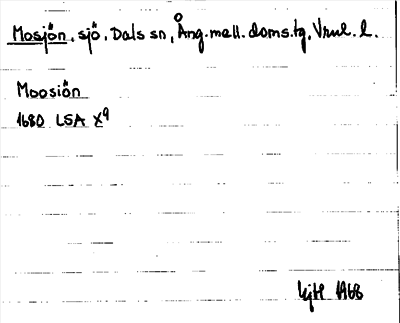 Mosjön, sjö, Dals sn, Ång. mell. doms.tg, Vnul. l.
Moosiön
1680 LSA X9
1968